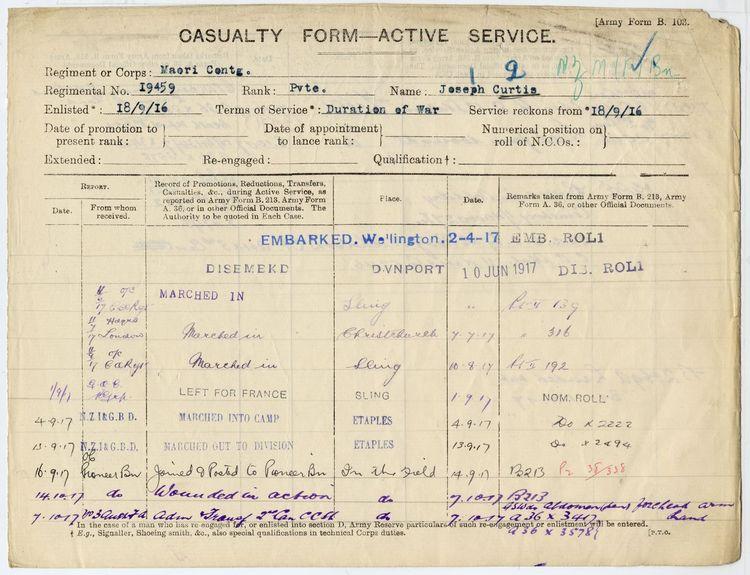 [Army Form B. 103.
CASUALTY FORM—ACTIVE SERVICE.
Regiment or Corps: Maori Contg. 1 2 N.Z. Bn
Regimental No. 19459 Rank: Pvte. Name: Joseph Curtis
Enlisted*: 18/9/16 Terms of Service*: Duration of War Service reckons from *18/9/16
Date of promotion to present rank: Date of appointment to lance rank: Numerical position on roll of N.C.Os.:
Extended: Re-engaged: Qualification †:
REPORT. Date. From whom received.
Record of Promotions, Reductions, Transfers, Casualties, &c., during Active Service, as reported on Army Form B. 213, Army Form A. 36, or in other Official Documents. The Authority to be quoted in Each Case.
Place. Date.
Remarks taken from Army Form B. 213, Army Form A. 36, or other Official Documents.
EMBARKED. Wellington. 2-4-17 EMB. ROLl
DISEMBKD DVNPORT 10 JUN 1917 DIS. ROLl
MARCHED IN Sling " Pt II 139
London Marched in Christchurch 7-7-17 " 316
Marched in Sling 10-8-17 Pt II 192
LEFT FOR FRANCE SLING 1-9-17 NOM. ROLL
4-9-17 N.Z.I&G.B.D. MARCHED INTO CAMP ETAPLES 4.9.17 Do x 2222
13-9-17 N.Z.I&G.B.D. MARCHED OUT TO DIVISION ETAPLES 13.9.17 Do x 2494
16-9-17 Pioneer Bn Joined & Posted to Pioneer Bn In the Field 14.9.17 B213
14.10.17 do Wounded in action do 7.10.17 B213
GSW abdomen forehead arm hand
7.10.17 Adm & Transf 2nd Can CCS do 7.10.17 A36 x 3417
A 36 x 3578
In the case of a man who has re-engaged for, or enlisted into section D, Army Reserve particulars of such re-engagement or enlistment will be entered.
† E.g., Signaller, Shoeing smith, &c., also special qualifications in technical Corps duties. [P.T.O.